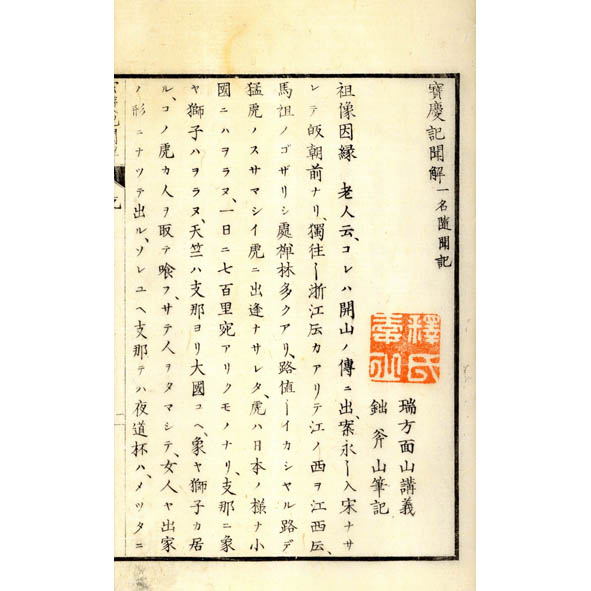 寶慶記聞解 一名隨聞記
瑞方面山講義
鈯斧山筆記
祖像因緣 老人云、コレハ開山ノ傳ニ出、寀永ー入宋ナサ
レテ皈朝前ナリ、獨往ー浙江㕵カアリテ江ノ西ヲ江西㕵、
馬祖ノゴザリシ處禅林多クアリ、路值ーイカシヤル路デ
猛虎ノスサマシイ虎ニ出逢ナサレタ、虎ハ日本ノ様ナ小
國ニハヲラヌ、一日ニ七百里宛アリクモノナリ、支那ニ象
ヤ獅子ハヲラヌ、天竺ハ支那ヨリ大國ユヘ、象ヤ獅子カ居
ル、コノ虎カ人ヲ取テ喰フ、サテ人ヲタマシテ、女人ヤ出家
ノ形ニナツテ出ル、ソレユヘ支那テハ夜道杯ハ、メツタニ
釋氏